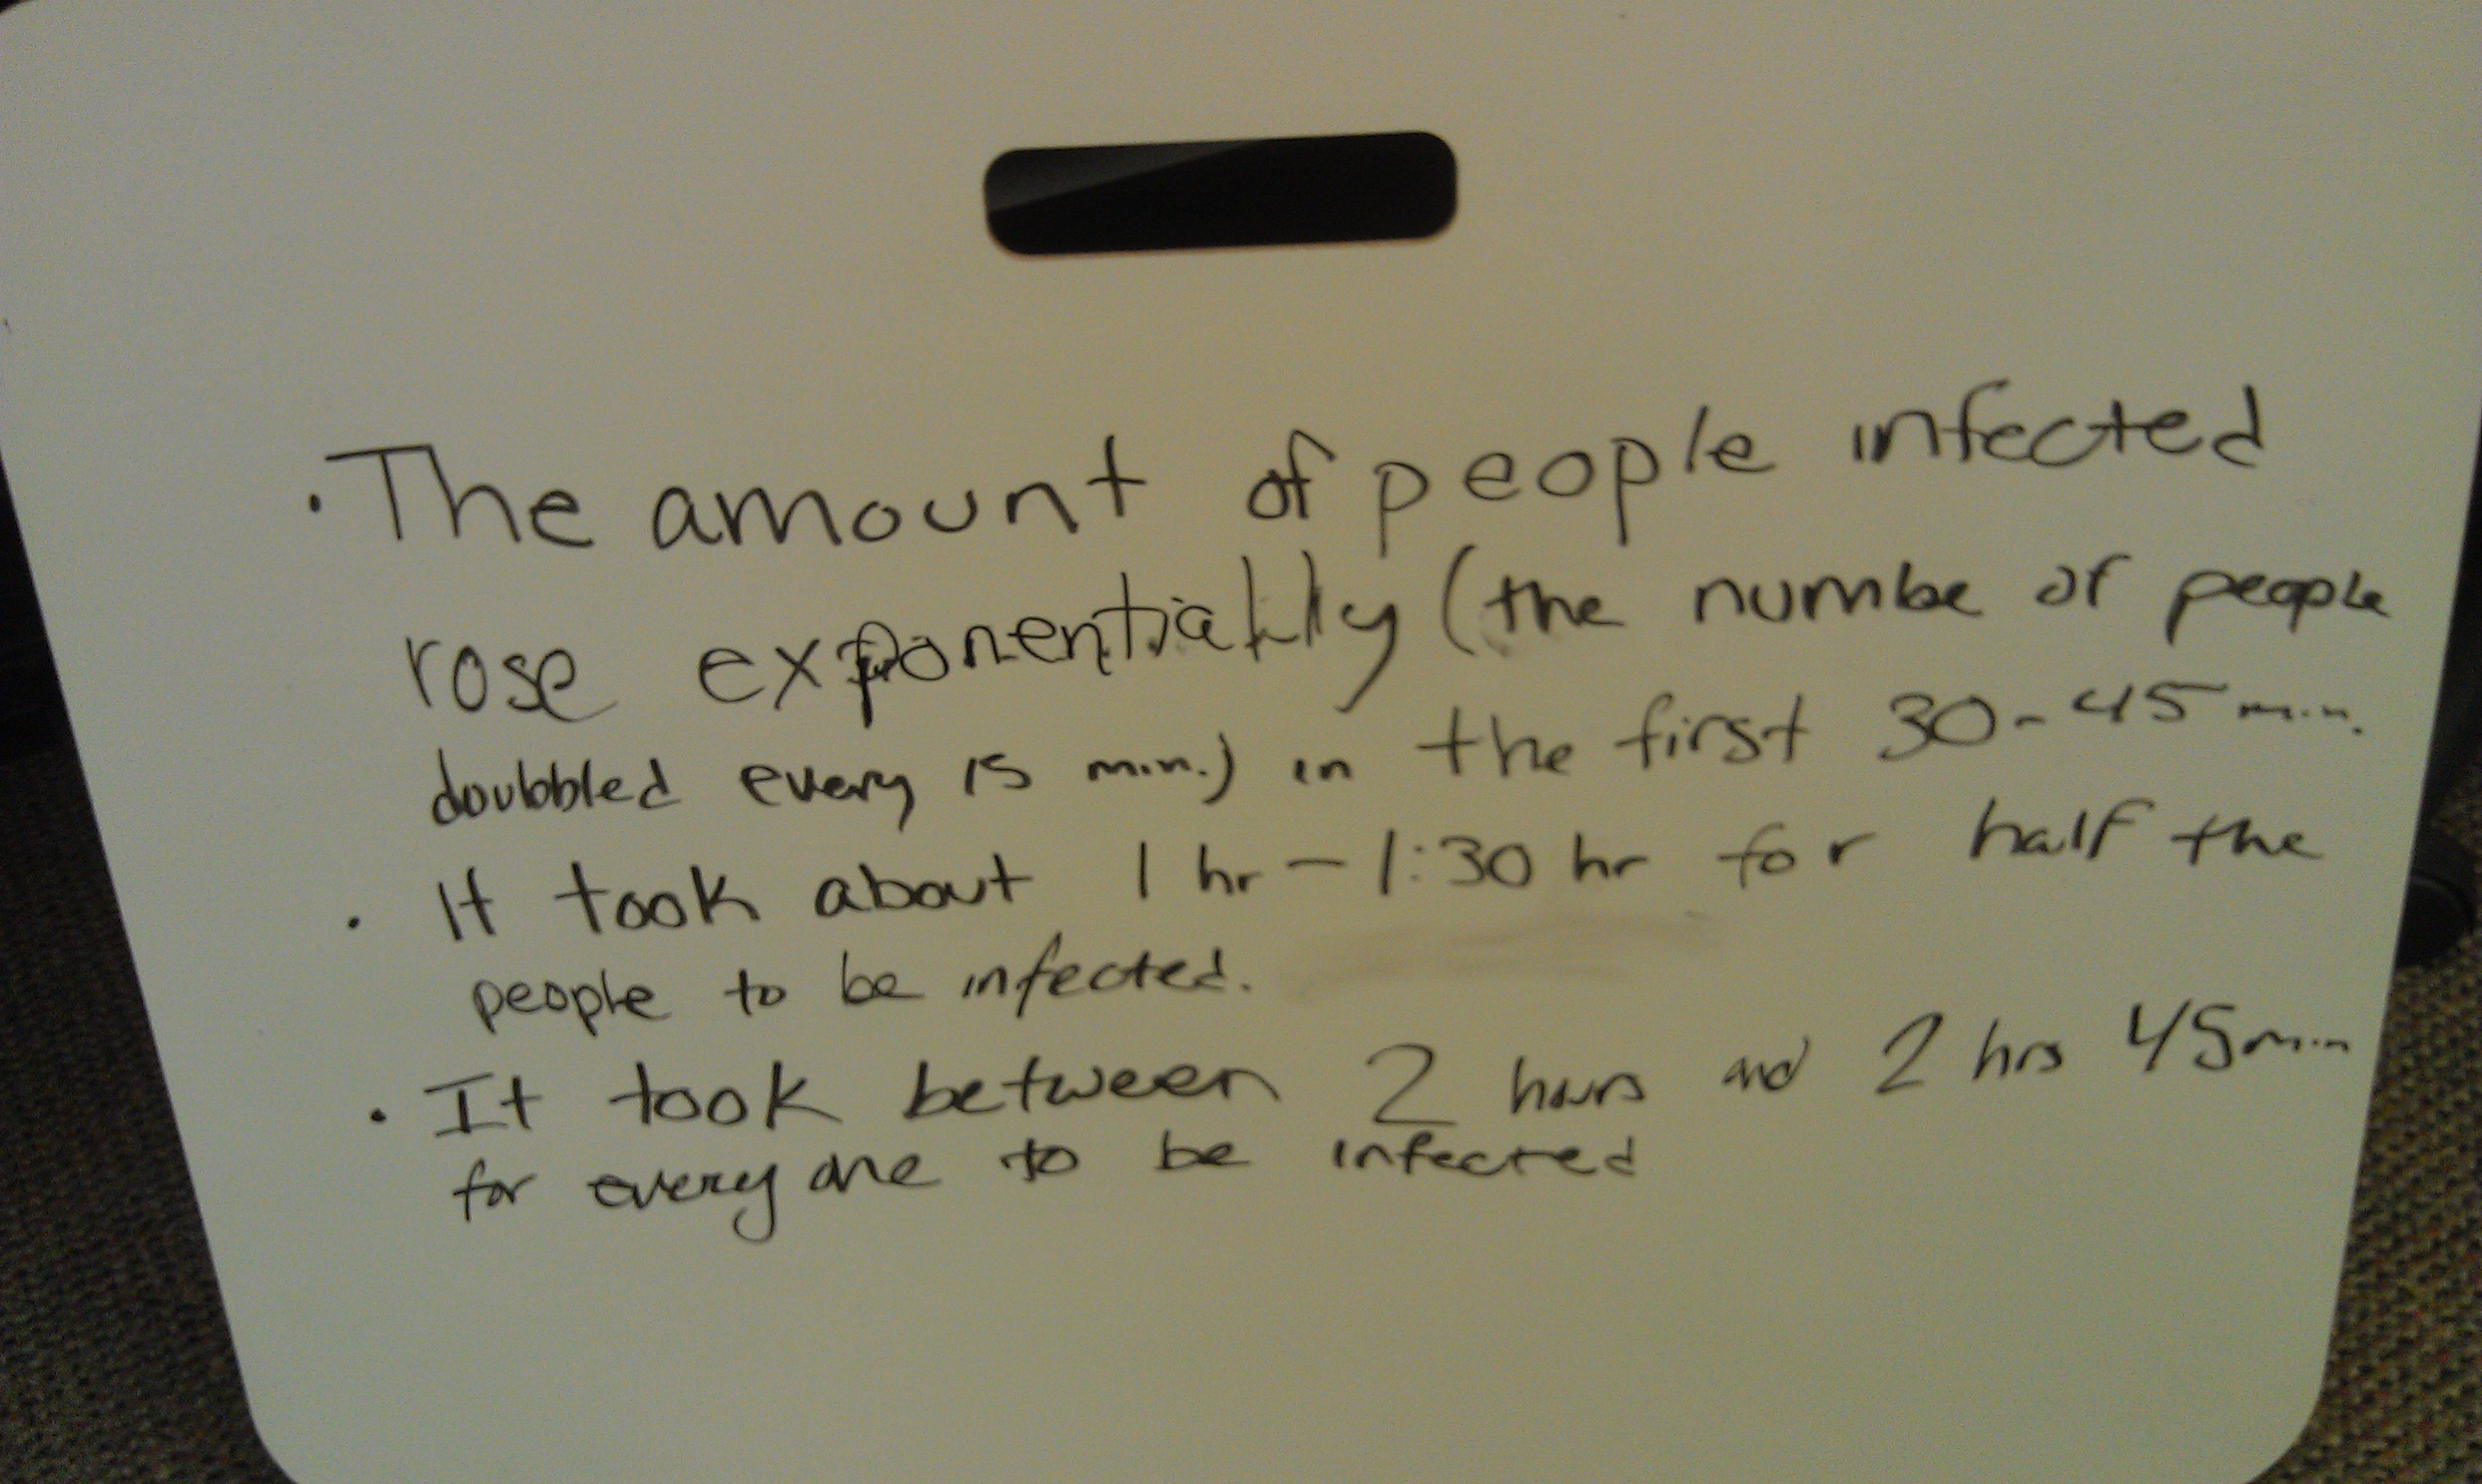 · The amount of people infected
rose exponentially (the numbe of people
doubbled every 15 min.) in the first 30-45 min.
· It took about 1 hr - 1:30 hr for half the
people to be infected.
· It took between 2 hours and 2 hrs 45 min
for everyone to be infected